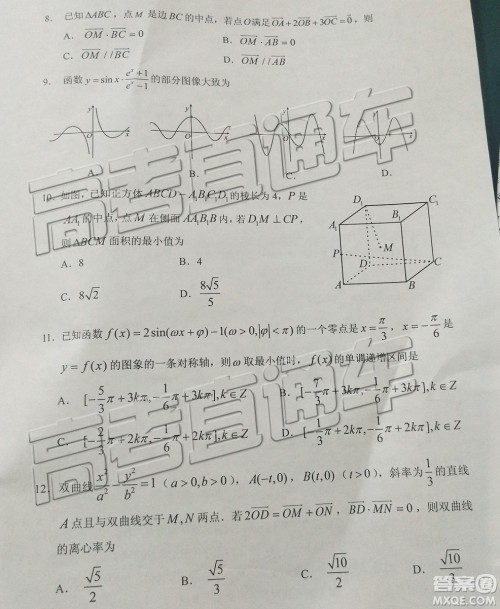 8. 已知△ABC，点M是边BC的中点，若点O满足OA+2OB+3OC=0，则
A. OM·BC=0    B. OM·AB=0
C. OM//BC    D. OM//AB
9. 函数y=sinx·(eˣ+1)/(eˣ−1)的部分图像大致为
A.    B.    C.    D.
10. 如图，已知正方体ABCD−A₁B₁C₁D₁的棱长为4，P是
AA₁的中点，点M在侧面AA₁B₁B内，若D₁M⊥CP，
则△BCM面积的最小值为
A. 8    B. 4
C. 8√2    D. 8√5/5
D₁ C₁ A₁ B₁ M P D C A B
11. 已知函数f(x)=2sin(ωx+φ)−1(ω>0,|φ|<π)的一个零点是x=π/3，x=−π/6是
y=f(x)的图象的一条对称轴，则ω取最小值时，f(x)的单调递增区间是
A. [−5/3π+3kπ,−1/6π+3kπ],k∈Z    B. [−7/3π+3kπ,−1/6π+3kπ],k∈Z
C. [−2/3π+2kπ,−1/6π+2kπ],k∈Z    D. [−1/3π+2kπ,−1/6π+2kπ],k∈Z
12. 双曲线x²/a²−y²/b²=1（a>0,b>0），A(−t,0)，B(t,0)（t>0），斜率为1/3的直线
A点且与双曲线交于M,N两点．若2OD=OM+ON，BD·MN=0，则双曲线
的离心率为
A. √5/2    B. √5/3    C. √10/2    D. √10/3
高考直通车
高考直通车
高考直通车
答案圈
MXQE.COM